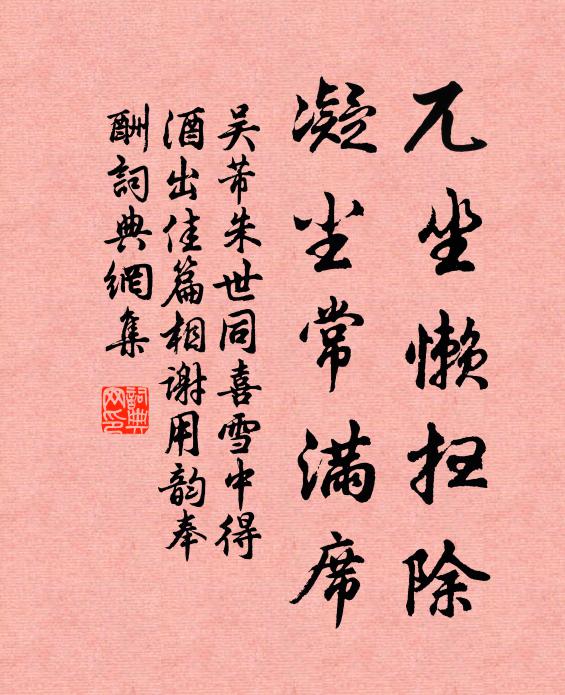 兀坐懒扫除
凝尘常满席
吴芾朱世同喜雪中得
酒出佳篇相谢用韵奉
酬词典網集
詞典
网印